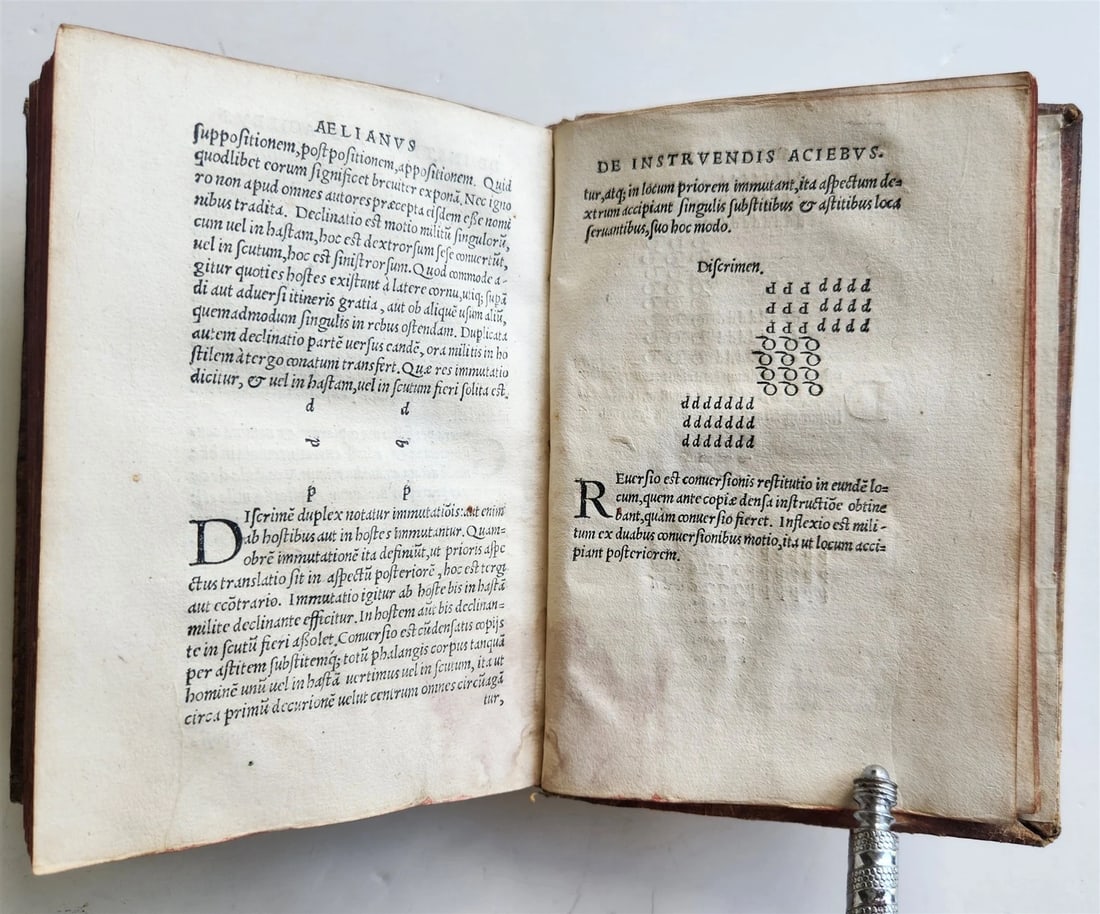 AELIANVS
suppositionem, postpositionem, appositionem. Quid
quodlibet eorum significet breuiter exponã. Nec igno
ro non apud omnes autores præcepta eisdem esse nomi
nibus tradita. Declinatio est motio militũ singulorũ,
cum uel in hastam, hoc est dextrorsum sese conuertũt,
uel in scutum, hoc est sinistrorsum. Quod commode a-
gitur quoties hostes existunt à latere cornu, utiq; supã
di aut aduersi itineris gratia, aut ob aliquẽ usum aliũ,
quemadmodum singulis in rebus ostendam. Duplicata
autem declinatio partẽ uersus eandẽ, ora militis in ho
stilem à tergo conatum transfert. Quæ res immutatio
dicitur, & uel in hastam, uel in scutum fieri solita est.
d d
d d
p p
DIscrimẽ duplex notatur immutatiõis: aut enim
ab hostibus aut in hostes immutantur. Quam-
obrẽ immutationẽ ita definiũt, ut prioris aspe
ctus translatio sit in aspectũ posteriorẽ, hoc est tergi
aut ecõtrario. Immutatio igitur ab hoste bis in hastã
milite declinante efficitur. In hostem aũt bis declinan-
te in scutũ fieri assolet. Conuersio est cũ densatis copijs
per astitem substitemq́; totũ phalangis corpus tanquã
hominẽ unũ uel in hastã uertimus uel in scutum, ita ut
circa primũ decurionẽ uelut centrum omnes circũagã
tur,
DE INSTRVENDIS ACIEBVS.
tur, atq; in locum priorem immutant, ita aspectum de-
xtrum accipiant singulis substitibus & astitibus loca
seruantibus, suo hoc modo.
Discrimen.
d d d d d d d
d d d d d d d
d d d d d d d
d d d
d d d
d d d
d d d
d d d d d d d
d d d d d d d
d d d d d d d
REuersio est conuersionis restitutio in eundẽ lo-
cum, quem ante copiæ densa instructiõe obtine
bant, quàm conuersio fieret. Inflexio est mili-
tum ex duabus conuersionibus motio, ita ut locum acci-
piant posteriorem.